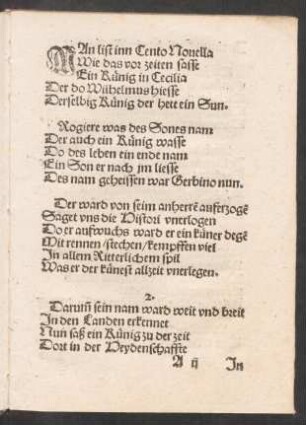 MAn list inn Cento Nouella
Wie das vor zeiten sasse
Ein Künig in Cecilia
Der do Wilhelmus hiesse
Derselbig Künig der hett ein Sun.
Rogiere was des Sones nam
Der auch ein Künig wasse
Do des leben ein ende nam
Ein Son er nach jm liesse
Des nam geheissen war Gerbino nun.
Der ward von seim anherrē aufferzogē
Saget vns die Histori vnerlogen
Do er auffwuchs ward er ein küner degē
Mit rennen/stechen/kempffen viel
In allem Ritterlichem spil
Was er der künest allzeit vnterlegen.
2.
Darum̄ sein nam ward weit vnd breit
In den Landen erkennet
Nun saß ein Künig zu der zeit
Dort in der Heydenschaffte
A ij In